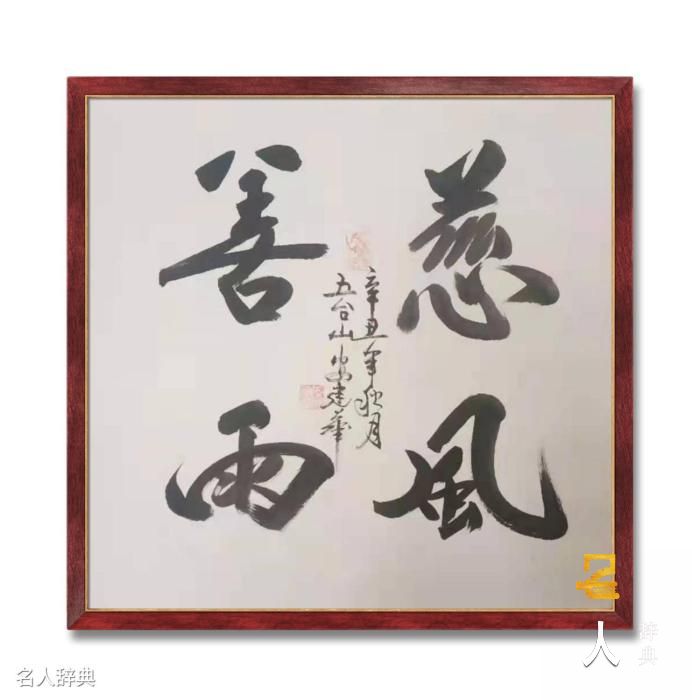 慈風
善雨
辛丑年秋月
五台山安建華
名人辞典
名人
辞典